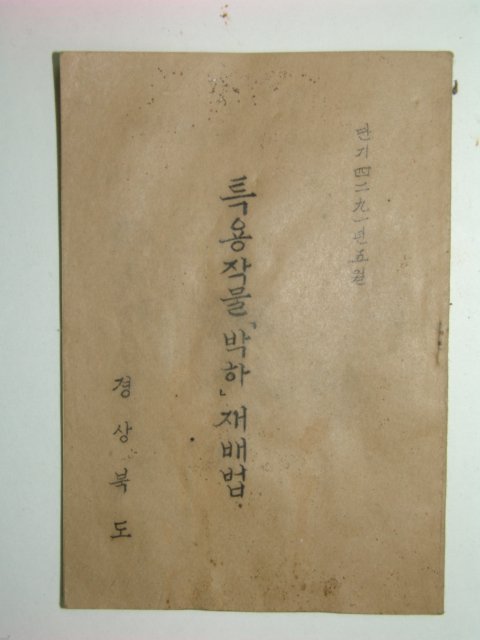 단기四二九一년五월
특용작물「박하」재배법.
경상북도